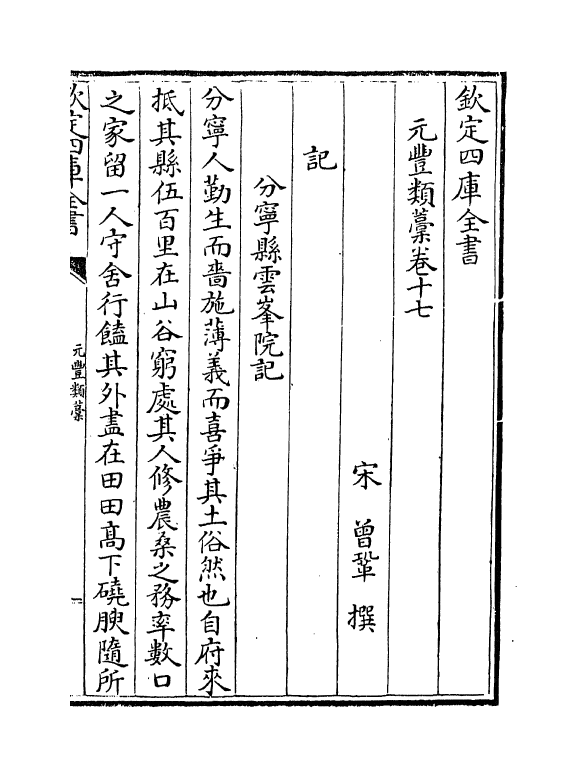 欽定四庫全書
元豐類藁卷十七
宋 曾鞏 撰
記
分寧縣雲峯院記
分寧人勤生而嗇施薄義而喜爭其土俗然也自府來
抵其縣伍百里在山谷窮處其人修農桑之務率數口
之家留一人守舍行饁其外盡在田田髙下磽腴隨所
欽定四庫全書
元豐類藁